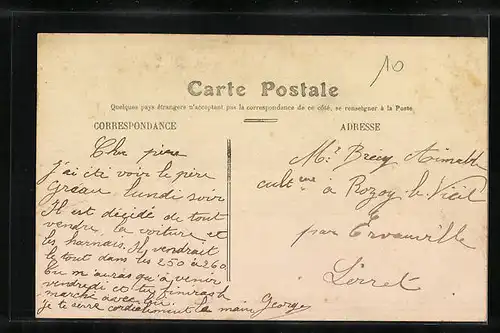 10
Carte Postale
Quelques pays étrangers n'acceptant pas la correspondance de ce côté, se renseigner à la Poste
CORRESPONDANCE
Cher père
j'ai été voir le père
Greau lundi soir
Il est décidé de tout
vendre, la voiture et
les harnais. Il vendrait
le tout dans les 250 à 260
tu m'auras qu'à venir
vendredi et tu finiras le
marché avec lui.
je te serre cordialement la main, Georges
ADRESSE
Mr Brécy Aimable
cultre à Rozoy-le-Vieil
par Ervauville
Loiret